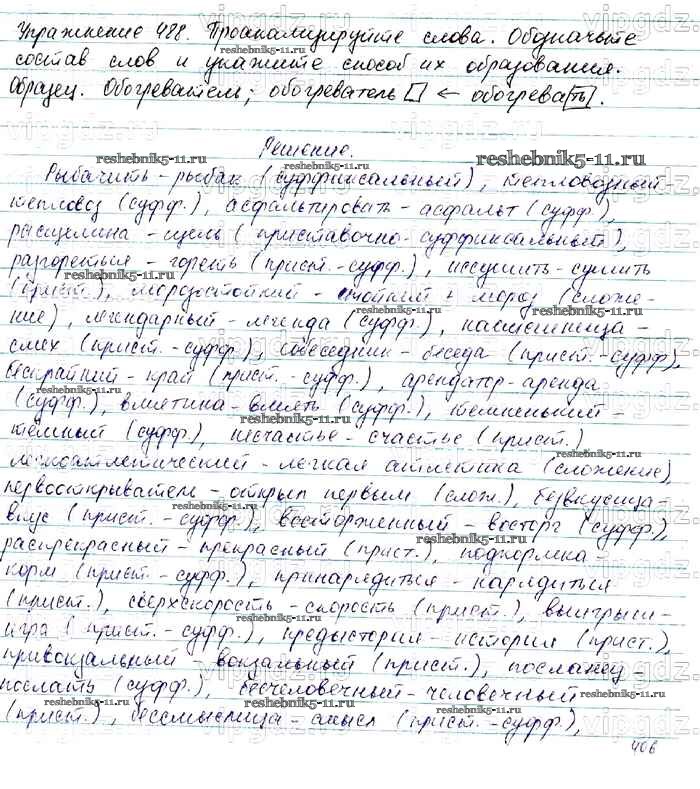 Упражнение 488. Проанализируйте слова. Обозначьте
состав слов и укажите способ их образования.
Образец. Обогреватель; обогреватель ← обогрева(ть).
Решение.
Рыбачить - рыбак (суффиксальный), тепловозный -
тепловоз (суфф.), асфальтировать - асфальт (суфф.),
расщелина - щель (приставочно-суффиксальный),
разгореться - гореть (прист.-суфф.), иссушить - сушить
(прист.), морозостойкий - стойкий + мороз (сложе-
ние), легендарный - легенда (суфф.), насмешница -
смех (прист.-суфф.), собеседник - беседа (прист.-суфф),
бескрайний - край (прист.-суфф.), арендатор аренда
(суфф.), вмятина - вмять (суфф.), темненький -
тёмный (суфф.), несчастье - счастье (прист.)
легкоатлетический - легкая атлетика (сложение),
первооткрыватель - открыл первым (слож.), безвкусица -
вкус (прист.-суфф.), восторженный - восторг (суфф.),
распрекрасный - прекрасный (прист.), подкормка -
корм (прист.-суфф.), принарядиться - нарядиться
(прист.), сверхскорость - скорость (прист.), выигрыш -
игра (прист.-суфф.), предыстория - история (прист.),
привокзальный - вокзальный (прист.), посланец -
послать (суфф.), бесчеловечный - человечный
(прист.), бессмыслица - смысл (прист.-суфф.),
406
reshebnik5-11.ru
vipgdz.ru